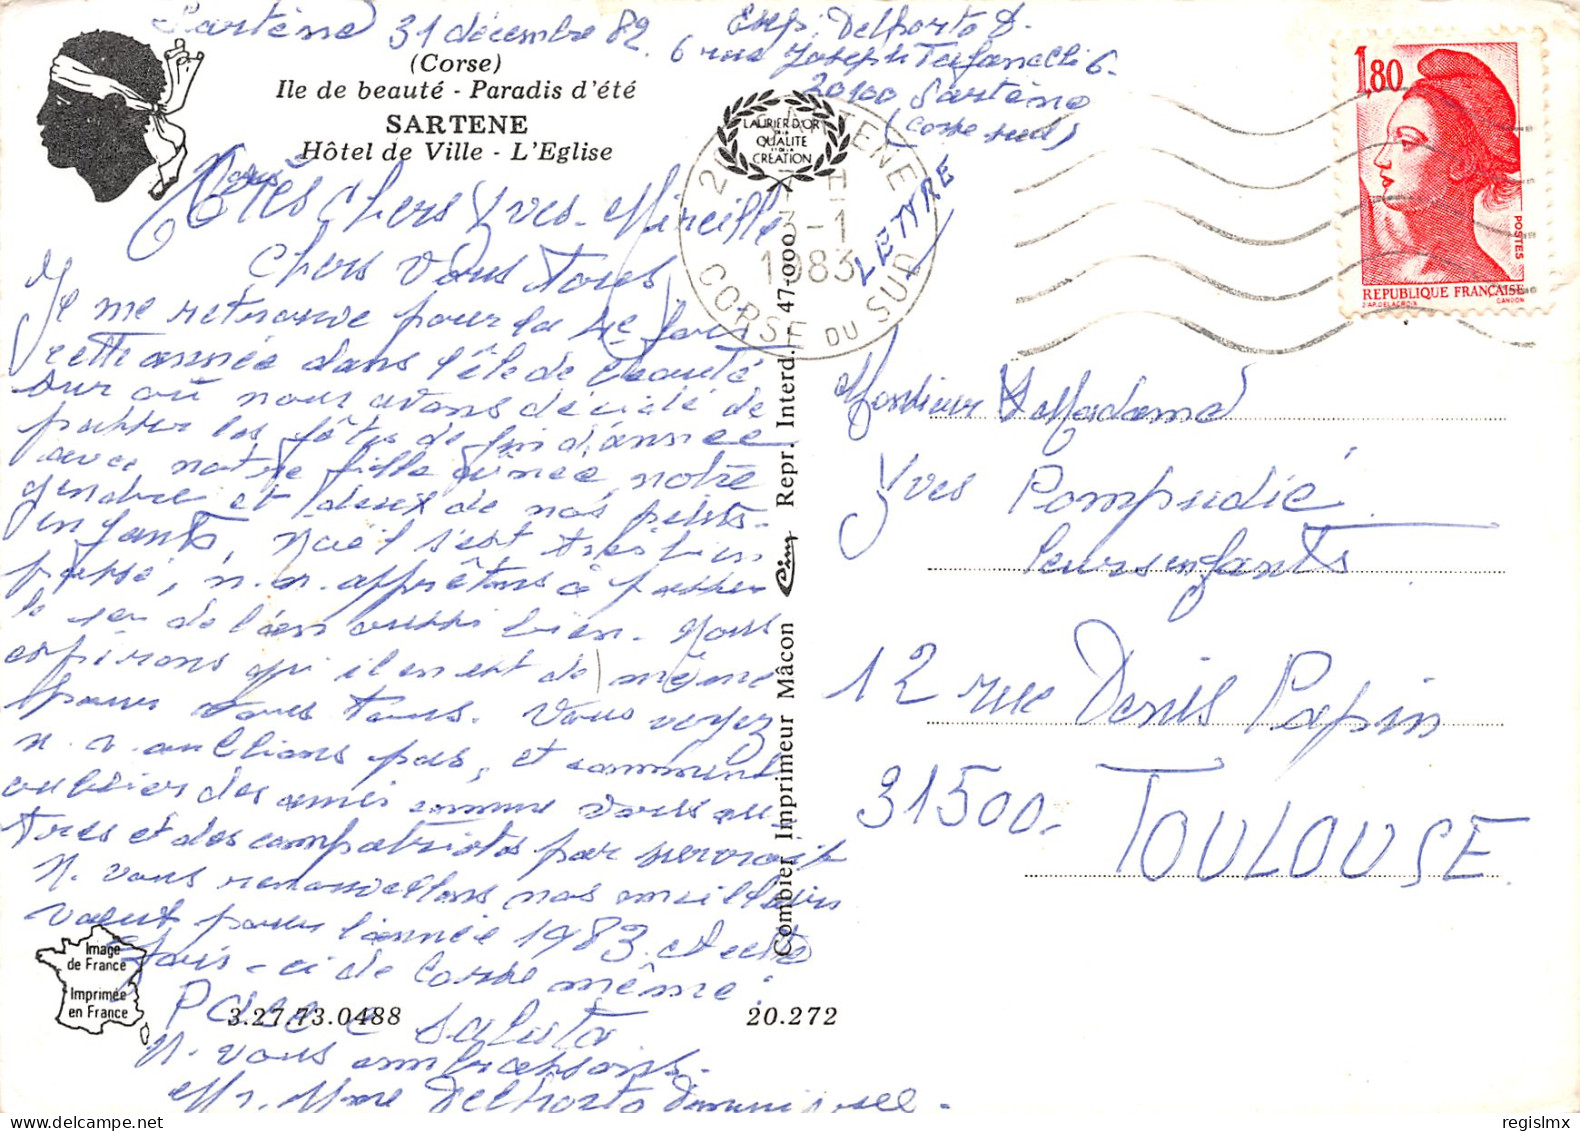 Sartène 31 décembre 82.
Exp: Delhorto D.
6 rue Joseph Tafanelli 6-
20100 Sartène
(Corse sud)
(Corse)
Ile de beauté - Paradis d'été
SARTENE
Hôtel de Ville - L'Eglise
LAURIER D'OR
DE LA
QUALITE
ET DE LA
CREATION
3-1
1983
CORSE DU SUD
LETTRE
1,80
POSTES
REPUBLIQUE FRANÇAISE
D'AP. DELACROIX GANDON
Très Chers Yves-Mireille
Chers Vous Tous
Je me retrouve pour la 4e fois
cette année dans l'île de beauté
sur où nous avons décidé de
passer les fêtes de fin d'année
avec notre fille aînée notre
gendre et deux de nos petits-
enfants, Noël s'est très bien
passé, n. n. apprêtons à passer
le jour de l'an aussi bien. Nous
espérons qu'il en est de même
pour vous tous. Vous voyez
n. v. oublions pas, et comment
oublier des amis comme vous au-
tres et des compatriotes par surcroit
N. vous renouvellons nos meilleurs
voeux pour l'année 1983. et cette
fois-ci de Corse même:
Pace e Saluta
N. vous embrassons.
Mr. Mme Delhorto
Monsieur & Madame
Yves Pompudié
Leurs enfants
12 rue Denis Papin
31500- TOULOUSE
Combier Imprimeur Mâcon Cim Repr. Interd. 47-000
Image
de France
Imprimée
en France
3.27.73.0488
20.272
regislmx